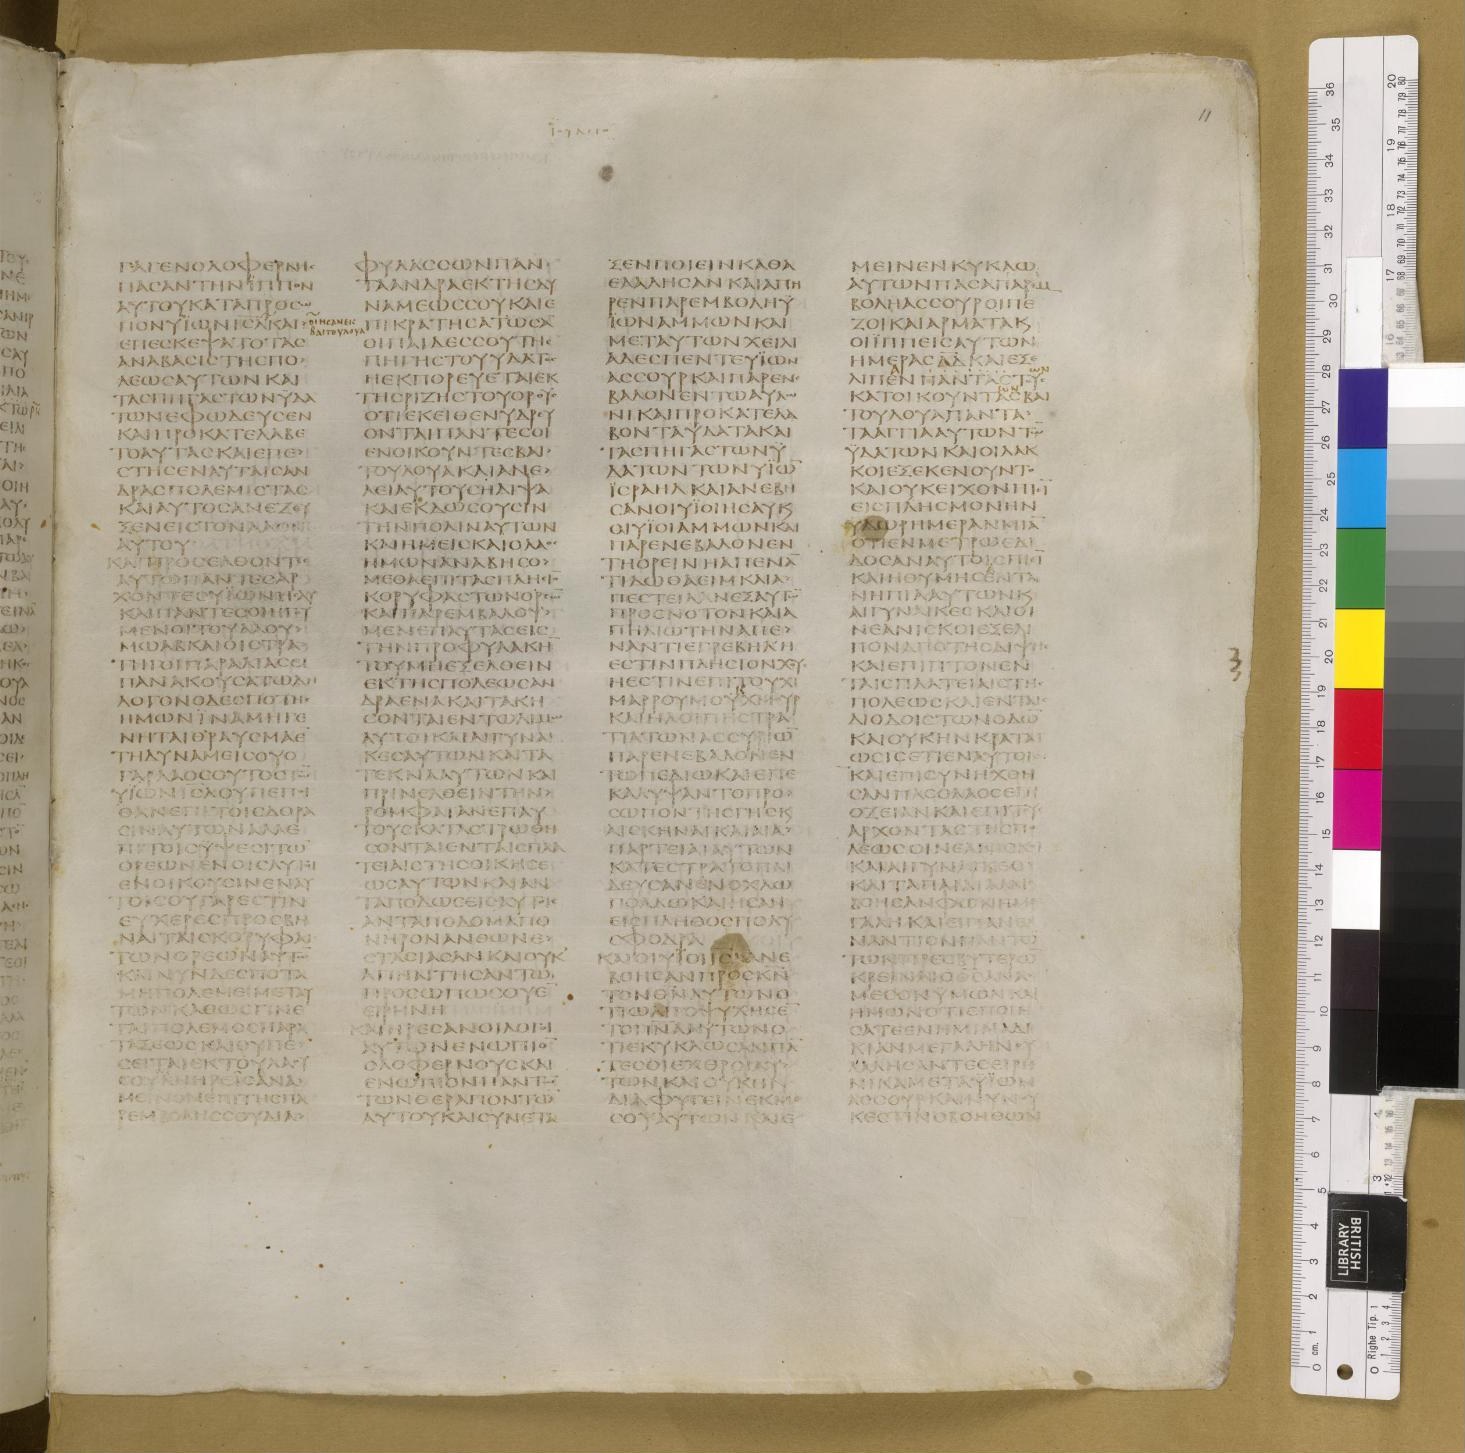 11
ΓΑΓΕΝΟΛΟΦΕΡΝΗϹ
ΠΑϹΑΝΤΗΝΪΠΠΟΝ
ΑΥΤΟΥΚΑΤΑΠΡΟϹΩ
ΠΟΝΥΪΩΝΙϹΛΚΑΙ
ΕΠΕϹΚΕΨΑΤΟΤΑϹ
ΑΝΑΒΑϹΙϹΤΗϹΠΟ
ΛΕΩϹΑΥΤΩΝΚΑΙ
ΤΑϹΠΗΓΑϹΤΩΝΥΔΑ
ΤΩΝΕΦΩΔΕΥϹΕΝ
ΚΑΙΠΡΟΚΑΤΕΛΑΒΕ
ΤΟΑΥΤΑϹΚΑΙΕΠΕ
ϹΤΗϹΕΝΑΥΤΑΙϹΑΝ
ΔΡΑϹΠΟΛΕΜΙϹΤΑϹ
ΚΑΙΑΥΤΟϹΑΝΕΖΕΥ
ΞΕΝΕΙϹΤΟΝΛΑΟΝ
ΑΥΤΟΥ
ΚΑΙΠΡΟϹΕΛΘΟΝΤΕϹ
ΑΥΤΩΠΑΝΤΕϹΑΡ
ΧΟΝΤΕϹΥΪΩΝΗϹΑΥ
ΚΑΙΠΑΝΤΕϹΟΙΗΓΥ
ΜΕΝΟΙΤΟΥΛΑΟΥ
ΜΩΑΒΚΑΙΟΙϹΤΡΑ
ΤΗΓΟΙΠΑΡΑΛΙΑϹϹΙ
ΠΑΝΑΚΟΥϹΑΤΩΔΗ
ΛΟΓΟΝΟΔΕϹΠΟΤΗϹ
ΗΜΩΝΪΝΑΜΗΓΕ
ΝΗΤΑΙΘΡΑΥϹΜΑΕ̅
ΤΗΔΥΝΑΜΕΙϹΟΥΟ
ΓΑΡΛΑΟϹΟΥΤΟϹΤΩ̅
ΥΪΩΝΙϹΛΟΥΠΕΠΟΙ
ΘΑΝΕΠΙΤΟΙϹΔΟΡΑ
ϹΙΝΑΥΤΩΝΑΛΛΕ
ΠΙΤΟΙϹΥΨΕϹΙΤΩ̅
ΟΡΕΩΝΕΝΟΙϹΑΥΤΟΙ
ΕΝΟΙΚΟΥϹΙΝΕΝΑΥ
ΤΟΙϹΟΥΓΑΡΕϹΤΙΝ
ΕΥΧΕΡΕϹΠΡΟϹΒΗ
ΝΑΙΤΑΙϹΚΟΡΥΦΑΙϹ
ΤΩΝΟΡΕΩΝΑΥΤΩ̅
ΚΑΙΝΥΝΔΕϹΠΟΤΑ
ΜΗΠΟΛΕΜΕΙΜΕΤΑΥ
ΤΩΝΚΑΘΩϹΓΙΝΕ
ΤΑΙΠΟΛΕΜΟϹΠΑΡΑ
ΤΑΞΕΩϹΚΑΙΟΥΠΕ
ϹΕΙΤΑΙΕΚΤΟΥΛΑΟΥ
ϹΟΥΑΝΗΡΕΙϹΑΝΑ
ΜΕΙΝΟΝΕΠΙΤΗϹΠΑ
ΡΕΜΒΟΛΗϹϹΟΥΔΙΑ
ΦΥΛΑϹϹΩΝΠΑΝ
ΤΑΑΝΔΡΑΕΚΤΗϹΔΥ
ΝΑΜΕΩϹϹΟΥΚΑΙΕ
ΠΙΚΡΑΤΗϹΑΤΩϹΑ̅
ΟΙΠΑΙΔΕϹϹΟΥΤΗϹ
ΠΗΓΗϹΤΟΥΥΔΑΤΟϹ
ΗΕΚΠΟΡΕΥΕΤΑΙΕΚ
ΤΗϹΡΙΖΗϹΤΟΥΟΡΟΥϹ
ΟΤΙΕΚΕΙΘΕΝΥΔΡΕΥ
ΟΝΤΑΙΠΑΝΤΕϹΟΙ
ΕΝΟΙΚΟΥΝΤΕϹΒΑΙ
ΤΟΥΛΟΥΑΚΑΙΑΝΕ
ΛΕΙΑΥΤΟΥϹΗΔΙΨΑ
ΚΑΙΕΚΔΩϹΟΥϹΙΝ
ΤΗΝΠΟΛΙΝΑΥΤΩΝ
ΚΑΙΗΜΕΙϹΚΑΙΟΛΑΟϹ
ΗΜΩΝΑΝΑΒΗϹΟ
ΜΕΘΑΕΠΙΤΑϹΠΛΗϹΙ̅
ΚΟΡΥΦΑϹΤΩΝΟΡΕΩ̅
ΚΑΙΠΑΡΕΜΒΑΛΟΥ
ΜΕΝΕΠΑΥΤΑϹΕΙϹ
ΤΗΝΠΡΟΦΥΛΑΚΗ̅
ΤΟΥΜΗΕΞΕΛΘΕΙΝ
ΕΚΤΗϹΠΟΛΕΩϹΑΝ
ΔΡΑΕΝΑΚΑΙΤΑΚΗ
ϹΟΝΤΑΙΕΝΤΩΛΙΜΩ
ΑΥΤΟΙΚΑΙΑΙΓΥΝΑΙ
ΚΕϹΑΥΤΩΝΚΑΙΤΑ
ΤΕΚΝΑΑΥΤΩΝΚΑΙ
ΠΡΙΝΕΛΘΕΙΝΤΗΝ
ΡΟΜΦΑΙΑΝΕΠΑΥ
ΤΟΥϹΚΑΤΑϹΤΡΩΘΗ
ϹΟΝΤΑΙΕΝΤΑΙϹΠΛΑ
ΤΕΙΑΙϹΤΗϹΟΙΚΗϹΕ
ΩϹΑΥΤΩΝΚΑΙΑΝ
ΤΑΠΟΔΩϹΕΙϹΑΥΤΟΙϹ
ΑΝΤΑΠΟΔΟΜΑΠΟ
ΝΗΡΟΝΑΝΘΩΝΕ
ϹΤΑϹΙΑϹΑΝΚΑΙΟΥΚ
ΑΠΗΝΤΗϹΑΝΤΩ
ΠΡΟϹΩΠΩϹΟΥΕ̅
ΕΙΡΗΝΗ
ΚΑΙΗΡΕϹΑΝΟΙΛΟΓΟΙ
ΑΥΤΩΝΕΝΩΠΙΟ̅
ΟΛΟΦΕΡΝΟΥϹΚΑΙ
ΕΝΩΠΙΟΝΠΑΝΤΩ̅
ΤΩΝΘΕΡΑΠΟΝΤΩ̅
ΑΥΤΟΥΚΑΙϹΥΝΕΤΑ
ΞΕΝΠΟΙΕΙΝΚΑΘΑ
ΕΛΑΛΗϹΑΝΚΑΙΑΠΗ
ΡΕΝΠΑΡΕΜΒΟΛΗΫ
ΪΩΝΑΜΜΩΝΚΑΙ
ΜΕΤΑΥΤΩΝΧΕΙΛΙ
ΑΔΕϹΠΕΝΤΕΥΪΩΝ
ΑϹϹΟΥΡΚΑΙΠΑΡΕΝΕ
ΒΑΛΟΝΕΝΤΩΑΥΛΩ
ΝΙΚΑΙΠΡΟΚΑΤΕΛΑ
ΒΟΝΤΑΥΔΑΤΑΚΑΙ
ΤΑϹΠΗΓΑϹΤΩΝΫ
ΔΑΤΩΝΤΩΝΥΪΩ̅
ΪϹΡΑΗΛΚΑΙΑΝΕΒΗ
ϹΑΝΟΙΥΪΟΙΗϹΑΥΚΑΙ
ΟΙΥΪΟΙΑΜΜΩΝΚΑΙ
ΠΑΡΕΝΕΒΑΛΟΝΕΝ
ΤΗΟΡΕΙΝΗΑΠΕΝΑ̅
ΤΙΔΩΘΑΕΙΜΚΑΙΑ
ΠΕϹΤΕΙΛΑΝΕΞΑΥΤΩ̅
ΠΡΟϹΝΟΤΟΝΚΑΙΑ
ΠΗΛΙΩΤΗΝΑΠΕ
ΝΑΝΤΙΕΓΡΕΒΗΛΗ
ΕϹΤΙΝΠΛΗϹΙΟΝΧΟΥϹ
ΗΕϹΤΙΝΕΠΙΤΟΥΧΙ
ΜΑΡΡΟΥΜΟΥΧΜΟΥΡ
ΚΑΙΗΛΟΙΠΗϹΤΡΑ
ΤΙΑΤΩΝΑϹϹΥΡΙΩ̅
ΠΑΡΕΝΕΒΑΛΟΝΕΝ
ΤΩΠΕΔΙΩΚΑΙΕΠΕ
ΚΑΛΥΨΑΝΤΟΠΡΟ
ϹΩΠΟΝΤΗϹΓΗϹΚ
ΑΙϹΚΗΝΑΙΚΑΙΑΙΑ
ΠΑΡΤΕΙΑΙΑΥΤΩΝ
ΚΑΤΕϹΤΡΑΤΟΠΑΙ
ΔΕΥϹΑΝΕΝΟΧΛΩ
ΠΟΛΛΩΚΑΙΗϹΑΝ
ΕΙϹΠΛΗΘΟϹΠΟΛΥ
ϹΦΟΔΡΑ
ΚΑΙΟΙΥΪΟΙΙϹΛΑΝΕ
ΒΟΗϹΑΝΠΡΟϹΚΝ̅
ΤΟΝΘΝΑΥΤΩΝΟ
ΤΙΩΛΙΓΟΨΥΧΗϹΕ̅
ΤΟΠΝΑΑΥΤΩΝΟ
ΤΙΕΚΥΚΛΩϹΑΝΠΑ̅
ΤΕϹΟΙΕΧΘΡΟΙΑΥ
ΤΩΝΚΑΙΟΥΚΗΝ
ΔΙΑΦΥΓΕΙΝΕΚΜΕ
ϹΟΥΑΥΤΩΝΚΑΙΕ
ΜΕΙΝΕΝΚΥΚΛΩ
ΑΥΤΩΝΠΑϹΑΠΑΡΕΜ
ΒΟΛΗΑϹϹΟΥΡΟΙΠΕ
ΖΟΙΚΑΙΑΡΜΑΤΑΚΑΙ
ΟΙΪΠΠΕΙϹΑΥΤΩΝ
ΗΜΕΡΑϹΛΔΚΑΙΕΞΕ
ΛΙΠΕΝΠΑΝΤΑϹΤΟΥϹ
ΚΑΤΟΙΚΟΥΝΤΑϹΒΑΙ
ΤΟΥΛΟΥΑΠΑΝΤΑ
ΤΑΑΓΓΙΑΑΥΤΩΝΤΩ̅
ΫΔΑΤΩΝΚΑΙΟΙΛΑΚ
ΚΟΙΕΞΕΚΕΝΟΥΝΤΟ
ΚΑΙΟΥΚΕΙΧΟΝΠΙΕΙ̅
ΕΙϹΠΛΗϹΜΟΝΗΝ
ΥΔΩΡΗΜΕΡΑΝΜΙΑ̅
ΟΤΙΕΝΜΕΤΡΩΕΔΙ
ΔΟϹΑΝΑΥΤΟΙϹΠΙΕΙ̅
ΚΑΙΗΘΥΜΗϹΕΝΤΑ
ΝΗΠΙΑΑΥΤΩΝΚ
ΑΙΓΥΝΑΙΚΕϹΚΑΙΟΙ
ΝΕΑΝΙϹΚΟΙΕΞΕΛΙ
ΠΟΝΑΠΟΤΗϹΔΙΨΗϹ
ΚΑΙΕΠΙΠΤΟΝΕΝ
ΤΑΙϹΠΛΑΤΕΙΑΙϹΤΗϹ
ΠΟΛΕΩϹΚΑΙΕΝΤΑΙϹ
ΔΙΟΔΟΙϹΤΩΝΟΔΩ̅
ΚΑΙΟΥΚΗΝΚΡΑΤΑΙ
ΩϹΙϹΕΤΙΕΝΑΥΤΟΙϹ
ΚΑΙΕΠΙϹΥΝΗΧΘΗ
ϹΑΝΠΑϹΟΛΑΟϹΕΠΙ
ΟΖΕΙΑΝΚΑΙΕΠΙΤΟΥϹ
ΑΡΧΟΝΤΑϹΤΗϹΠΟ
ΛΕΩϹΟΙΝΕΑΝΙϹΚΟΙ
ΚΑΙΑΙΓΥΝΑΙΚΕϹ
ΚΑΙΤΑΠΑΙΔΙΑΚΑΙ
ΓΑΛΗΚΑΙΕΙΠΑΝΕ
ΝΑΝΤΙΟΝΠΑΝΤΩ̅
ΤΩΝΠΡΕϹΒΥΤΕΡΩ̅
ΚΡΕΙΝΑΙΟΘϹΑΝΑ
ΜΕϹΟΝΥΜΩΝΚΑΙ
ΗΜΩΝΟΤΙΕΠΟΙΗ
ϹΑΤΕΕΝΗΜΙΝΑΔΙ
ΚΙΑΝΜΕΓΑΛΗΝΟΥ
ΛΑΛΗϹΑΝΤΕϹΕΙΡΗ
ΝΙΚΑΜΕΤΑΥΪΩΝ
ΑϹϹΟΥΡΚΑΙΝΥΝΟΥ
ΚΕϹΤΙΝΟΒΟΗΘΩΝ